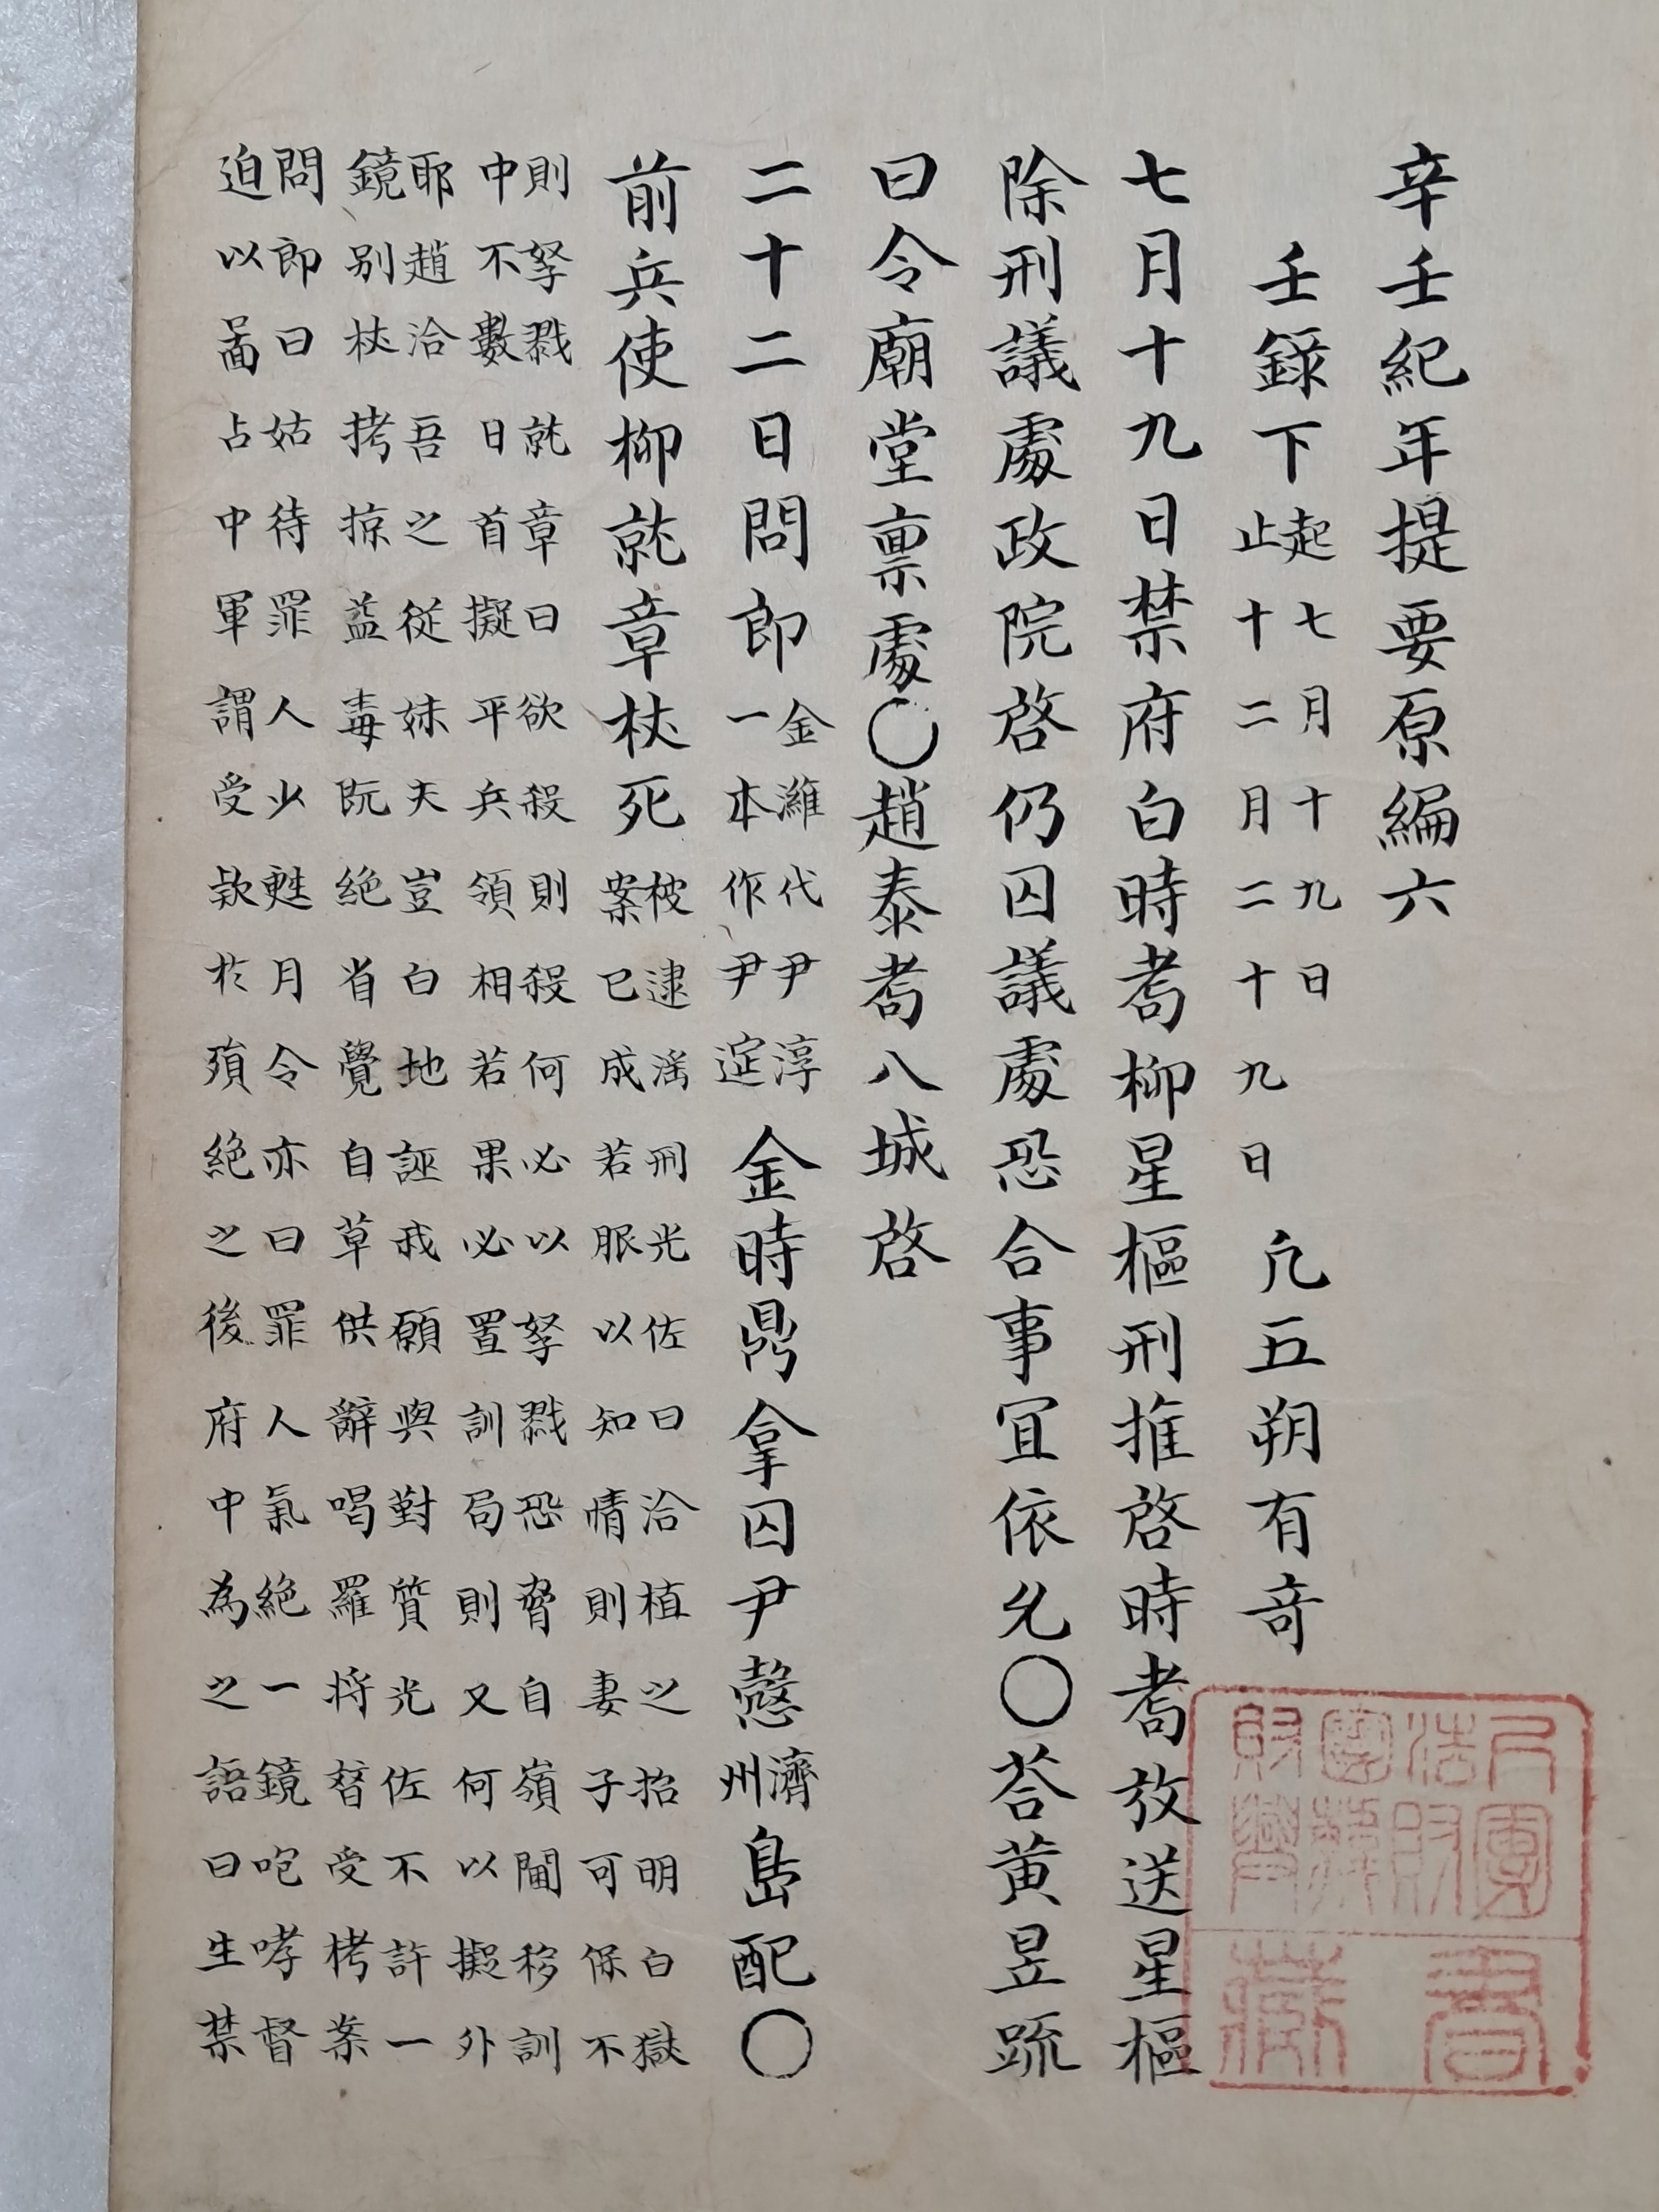 辛壬紀年提要原編六
壬錄下起七月十九日止十二月二十九日凢五朔有竒
七月十九日禁府白時耉柳星樞刑推啓時耉放送星樞
除刑議處政院啓仍囚議處恐合事宜依允〇荅黄昱疏
曰令廟堂稟處〇趙泰耉八城啓
二十二日問郎金濰代尹淳一本作尹金時鼎拿囚尹慤濟州島配〇
前兵使柳就章杖死被逮滛刑光佐曰洽植之招明白獄案已成若服以知情則妻子可保不
則孥戮就章曰欲殺則殺何必以孥戮恐脅自嶺閫移訓
中不數日首擬平兵領相若果必置訓局則又何以擬外
耶趙洽吾之從妹夫豈白地誣我願與對質光佐不許一
鏡别杖拷掠益毒旣絶省覺自草供辭喝羅將替受栲案
問郎曰姑待罪人少甦月令亦曰罪人氣絶一鏡咆哮督
迫以啚占中軍謂受欵於殞絶之後府中為之語曰生禁
書藏